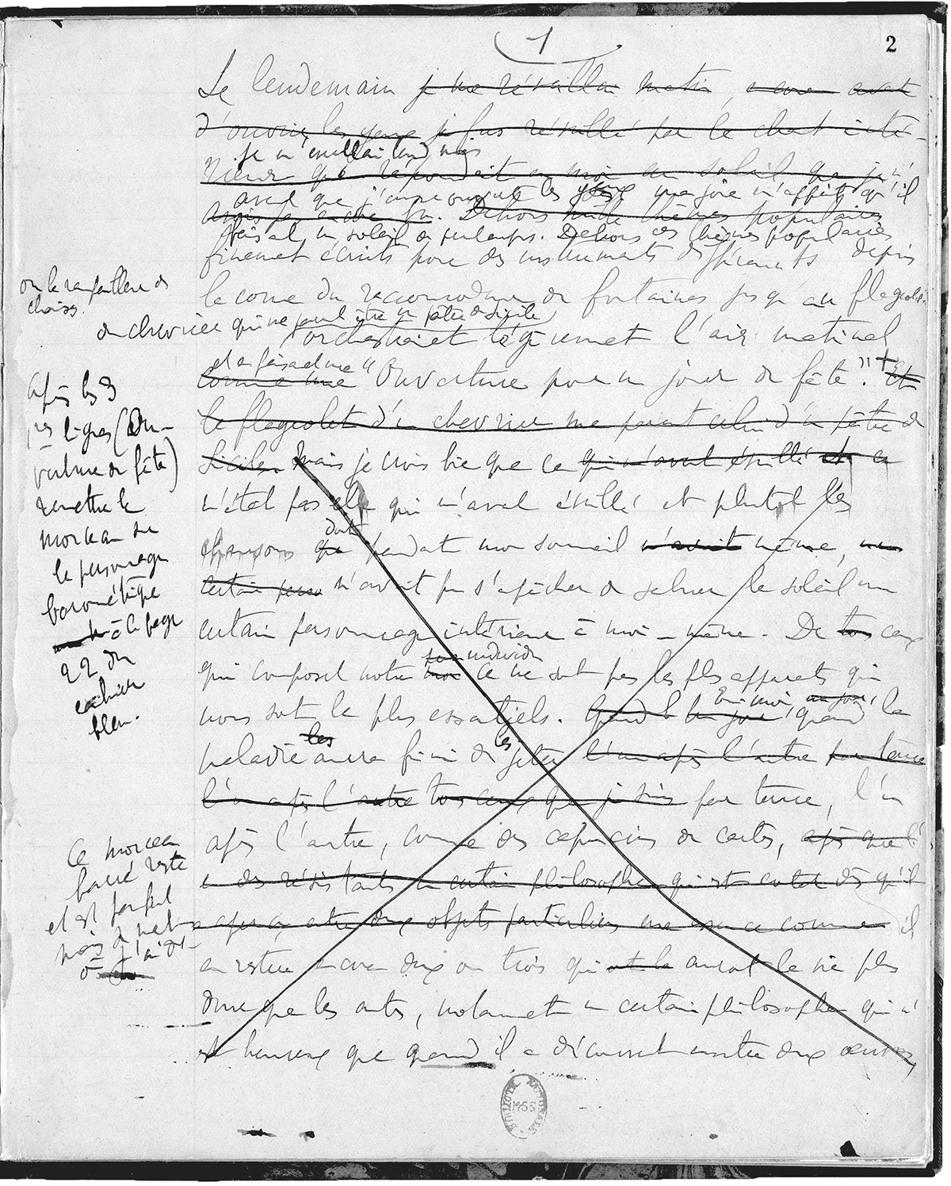 1
2
Le lendemain je me réveillai matin, avant
d'ouvrir les yeux je fus réveillé par le chant inté-
je m'éveillai tard, mais
rieur qui répondait en moi au soleil que je n'
avant que j'eusse ouvert les yeux ma joie m'apprit qu'il
avais pas encore vu. Dehors mille thèmes populaires
faisait un soleil de printemps. Dehors des thèmes populaires
finement écrits pour des instruments différents depuis
le corne du raccommodeur de fontaines jusqu'au flageolet
ou le rempailleur de
chaises
du chevrier qui ne peut être un pâtre de Sicile
orchestraient légèrement l'air matinal
et en faisait une
comme une "Ouverture pour un jour de fête". + Et
le flageolet d'un chevrier me parut celui d'un pâtre de
Sicile. Mais je crois bien que ce qui m'avait éveillé et ce
n'était pas elle qui m'avait éveillé et plutôt les
chansons dont pendant mon sommeil même,
certain n'avait pu s'empêcher de saluer le soleil un
certain personnage intérieur à moi-même. De tous ceux
qui composent notre individu ce ne sont pas les plus apparents qui
nous sont le plus essentiels. Quand la En moi, quand la
maladie aura fini de les jeter l'un après l'autre par terre
l'un après l'autre tous ceux que je suis par terre, l'un
après l'autre, comme des capucins de cartes, après que
des résistants un certain philosophe qui dès qu'il
a aperçu entre deux objets particuliers une essence commune il
en restera encore deux ou trois qui auront la vie plus
dure que les autres, notamment un certain philosophe qui n'
est heureux que quand il a découvert entre deux œuvres,
Après les 3
1res lignes (Ou-
verture de fête)
remettre le
morceau sur
le personnage
barométrique
à la page
22 du
cahier
bleu.
Ce morceau
barré reste